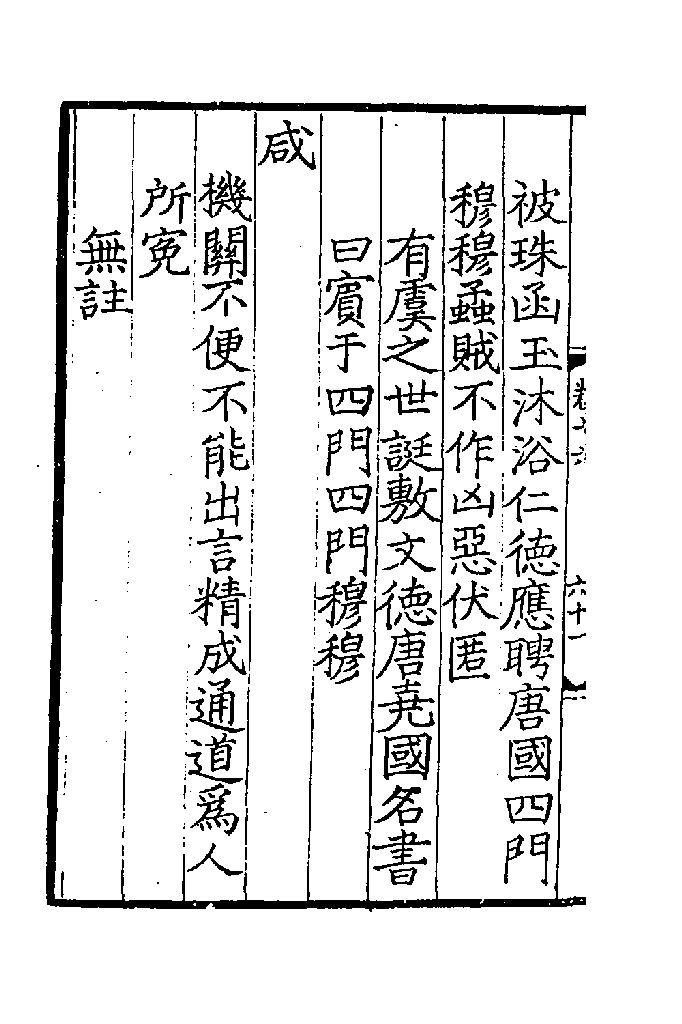 被珠函玉沐浴仁徳應聘唐國四門
穆穆蟊賊不作凶惡伏匿
有虞之世誕敷文徳唐堯國名書
曰賔于四門四門穆穆
咸
機關不便不能出言精成通道爲人
所寃
無註
六十一